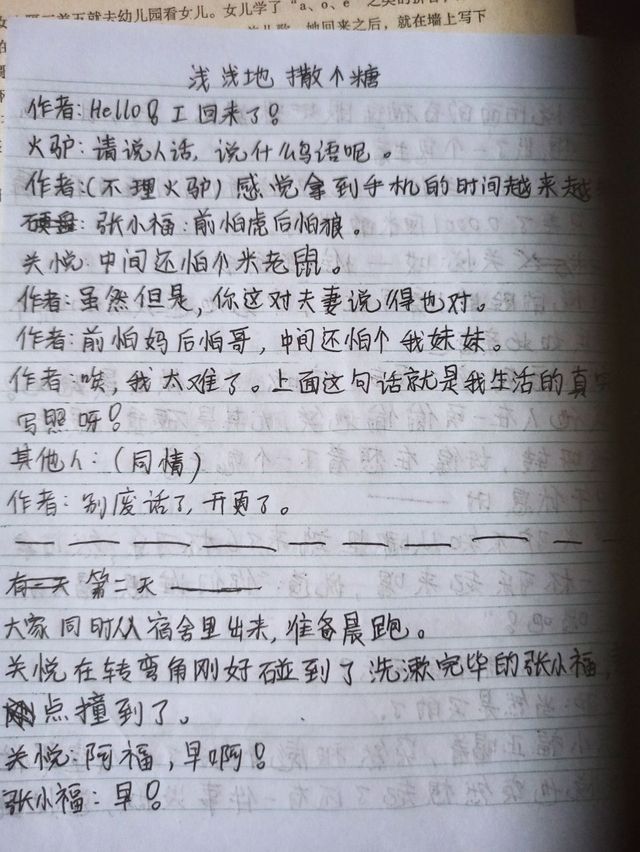 女儿。女儿学了“a、o、e”之类的拼音
她回来之后，就在墙上写下
浅浅地撒个糖
作者：Hello！I回来了！
火驴：请说人话，说什么鸟语呢。
作者：（不理火驴）感觉拿到手机的时间越来越
张小福：前怕虎后怕狼。
关悦：中间还怕个米老鼠。
作者：虽然但是，你这对夫妻说得也对。
作者：前怕妈后怕哥，中间还怕个我妹妹。
作者：唉，我太难了。上面这句话就是我生活的真实
写照呀！
其他人：（同情）
作者：别废话了，开更了。
第二天
大家同时从宿舍里出来，准备晨跑。
关悦在转弯角刚好碰到了洗漱完毕的张小福，
点撞到了。
关悦：阿福，早啊！
张小福：早！